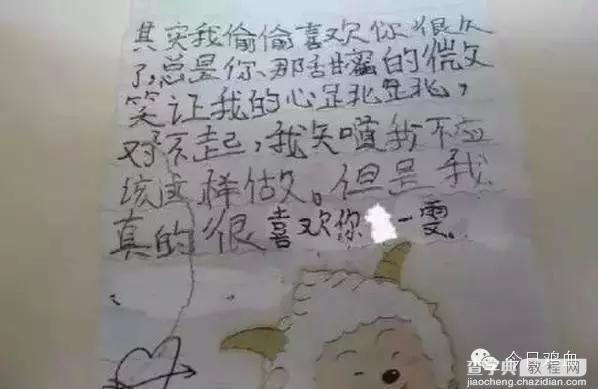 其实我偷偷喜欢你很久
了,总是你那甜蜜的微
笑让我的心跳跳,
对不起,我知道我不应
该这样做。但是我
真的很喜欢你一雯。
今日鸡血
查字典 教程网
jiaocheng.chazidian.com